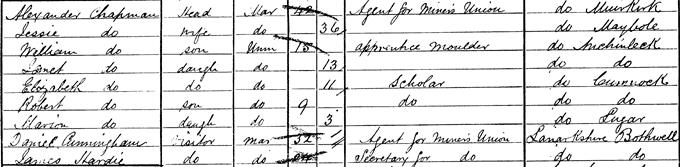 Alexander Chapman Head Mar Agent for Miners Union do Muirkirk
Jessie do wife do 36 do Maybole
William do son Unm 15 apprentice Moulder do Auchinleck
Janet do daugh do 13 do do
Elizabeth do do do 11 Scholar do Cumnock
Robert do son do 9 do do do
Marion do daugh do 3 do Lugar
Daniel Cunningham Visitor mar 32 Agent for Miners Union Lanarkshire Bothwell
James Hardie do do Secretary for do do do